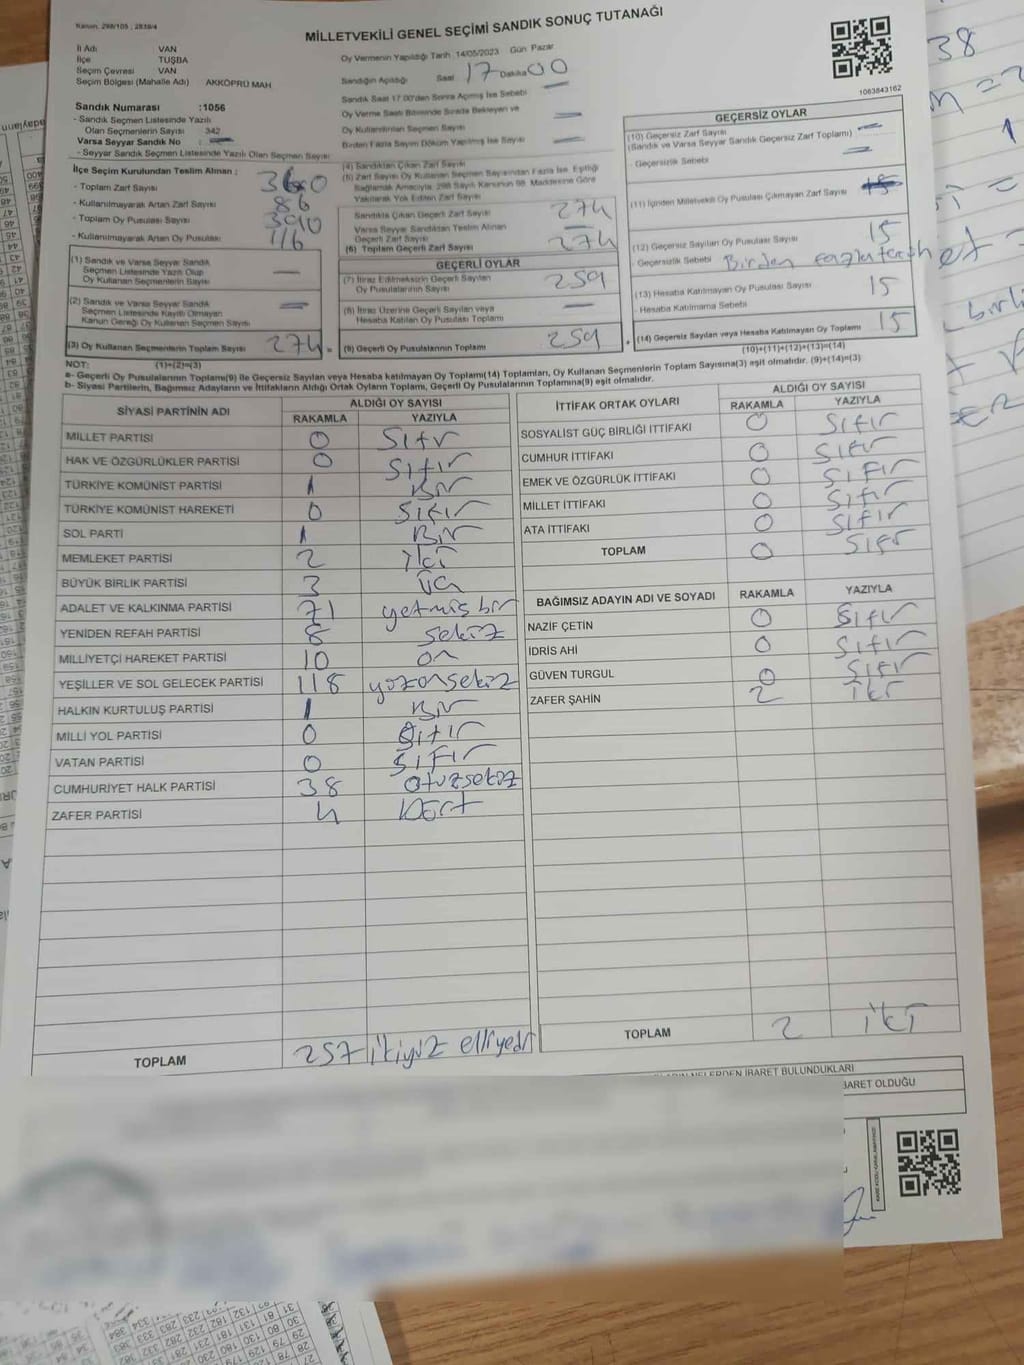 Kanun, 298/105 , 2839/4
MİLLETVEKİLİ GENEL SEÇİMİ SANDIK SONUÇ TUTANAĞI
İl Adı VAN
İlçe TUŞBA
Seçim Çevresi VAN
Seçim Bölgesi (Mahalle Adı) AKKÖPRÜ MAH
Sandık Numarası :1056
- Sandık Seçmen Listesinde Yazılı
Olan Seçmenlerin Sayısı 342
Varsa Seyyar Sandık No
- Seyyar Sandık Seçmen Listesinde Yazılı Olan Seçmen Sayısı
Oy Vermenin Yapıldığı Tarih 14/05/2023 Gün Pazar
Sandığın Açıldığı Saat 17 Dakika 00
Sandık Saat 17.00'den Sonra Açılmış İse Sebebi
Oy Verme Saati Bitiminde Sırada Bekleyen ve
Oy Kullandırılan Seçmen Sayısı
Birden Fazla Sayım Döküm Yapılmış İse Sayısı
1063843162
İlçe Seçim Kurulundan Teslim Alınan :
- Toplam Zarf Sayısı 360
- Kullanılmayarak Artan Zarf Sayısı 86
- Toplam Oy Pusulası Sayısı 390
- Kullanılmayarak Artan Oy Pusulası 116
(1) Sandık ve Varsa Seyyar Sandık
Seçmen Listesinde Yazılı Olup
Oy Kullanan Seçmenlerin Sayısı
(2) Sandık ve Varsa Seyyar Sandık
Seçmen Listesinde Kayıtlı Olmayan
Kanun Gereği Oy Kullanan Seçmen Sayısı
(3) Oy Kullanan Seçmenlerin Toplam Sayısı 274
(4) Sandıktan Çıkan Zarf Sayısı
(5) Zarf Sayısı Oy Kullanan Seçmen Sayısından Fazla İse, Eşitliği
Sağlamak Amacıyla, 298 Sayılı Kanunun 98. Maddesine Göre
Yakılarak Yok Edilen Zarf Sayısı
Sandıkta Çıkan Geçerli Zarf Sayısı 274
Varsa Seyyar Sandıktan Teslim Alınan
Geçerli Zarf Sayısı
(6) Toplam Geçerli Zarf Sayısı 274
GEÇERLİ OYLAR
(7) İtiraz Edilmeksizin Geçerli Sayılan
Oy Pusulalarının Sayısı 259
(8) İtiraz Üzerine Geçerli Sayılan veya
Hesaba Katılan Oy Pusulası Toplamı
(9) Geçerli Oy Pusulalarının Toplamı 259
GEÇERSİZ OYLAR
(10) Geçersiz Zarf Sayısı
(Sandık ve Varsa Seyyar Sandık Geçersiz Zarf Toplamı)
- Geçersizlik Sebebi
(11) İçinden Milletvekili Oy Pusulası Çıkmayan Zarf Sayısı
(12) Geçersiz Sayılan Oy Pusulası Sayısı 15
- Geçersizlik Sebebi Birden fazla tercih
(13) Hesaba Katılmayan Oy Pusulası Sayısı 15
- Hesaba Katılmama Sebebi
(14) Geçersiz Sayılan veya Hesaba Katılmayan Oy Toplamı 15
(10)+(11)+(12)+(13)=(14)
NOT: (1)+(2)=(3)
a- Geçerli Oy Pusulalarının Toplamı(9) ile Geçersiz Sayılan veya Hesaba katılmayan Oy Toplamı(14) Toplamları, Oy Kullanan Seçmenlerin Toplam Sayısına(3) eşit olmalıdır. (9)+(14)=(3)
b- Siyasi Partilerin, Bağımsız Adayların ve İttifakların Aldığı Ortak Oyların Toplamı, Geçerli Oy Pusulalarının Toplamına(9) eşit olmalıdır.
SİYASİ PARTİNİN ADI ALDIĞI OY SAYISI
RAKAMLA YAZIYLA
MİLLET PARTİSI 0 Sıfır
HAK VE ÖZGÜRLÜKLER PARTİSİ 0 Sıfır
TÜRKİYE KOMÜNİST PARTİSİ 1 Bir
TÜRKİYE KOMÜNİST HAREKETİ 0 Sıfır
SOL PARTİ 1 Bir
MEMLEKET PARTİSİ 2 İki
BÜYÜK BİRLİK PARTİSİ 3 üç
ADALET VE KALKINMA PARTİSİ 71 yetmiş bir
YENİDEN REFAH PARTİSİ 8 sekiz
MİLLİYETÇİ HAREKET PARTİSİ 10 on
YEŞİLLER VE SOL GELECEK PARTİSİ 118 yüzonsekiz
HALKIN KURTULUŞ PARTİSİ 1 Bir
MİLLİ YOL PARTİSİ 0 Sıfır
VATAN PARTİSİ 0 Sıfır
CUMHURİYET HALK PARTİSİ 38 otuzsekiz
ZAFER PARTİSİ 4 Dört
TOPLAM 257 ikiyüz elliyedi
İTTİFAK ORTAK OYLARI ALDIĞI OY SAYISI
RAKAMLA YAZIYLA
SOSYALİST GÜÇ BİRLİĞİ İTTİFAKI 0 Sıfır
CUMHUR İTTİFAKI 0 Sıfır
EMEK VE ÖZGÜRLÜK İTTİFAKI 0 Sıfır
MİLLET İTTİFAKI 0 Sıfır
ATA İTTİFAKI 0 Sıfır
TOPLAM 0 Sıfır
BAĞIMSIZ ADAYIN ADI VE SOYADI RAKAMLA YAZIYLA
NAZİF ÇETİN 0 Sıfır
İDRİS AHİ 0 Sıfır
GÜVEN TURGUL 0 Sıfır
ZAFER ŞAHİN 2 iki
TOPLAM 2 iki
NELERDEN İBARET BULUNDUKLARI
İBARET OLDUĞU
38